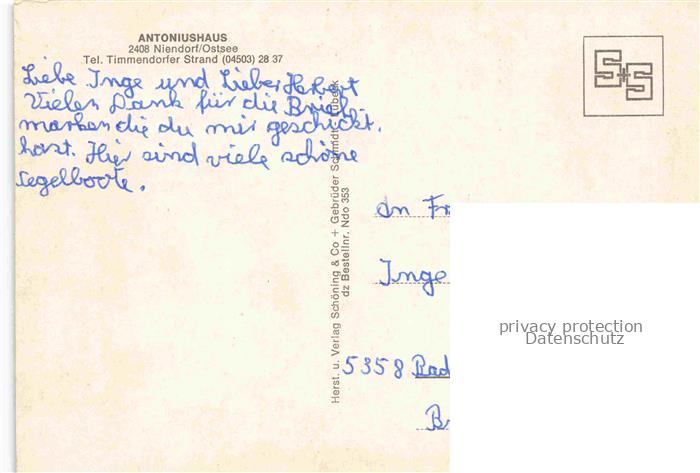 ANTONIUSHAUS
2408 Niendorf/Ostsee
Tel. Timmendorfer Strand (04503) 28 37
Liebe Inge und Lieber Herbert
Vielen Dank für die Brief
marken die du mir geschickt.
hast. Hier sind viele schöne
segelboote.
Herst. u. Verlag Schöning & Co + Gebrüder Schmidt, Lübeck
dz Bestellnr. Ndo 353
S+S
An Fr
Inge
5358 Bad
privacy protection
Datenschutz